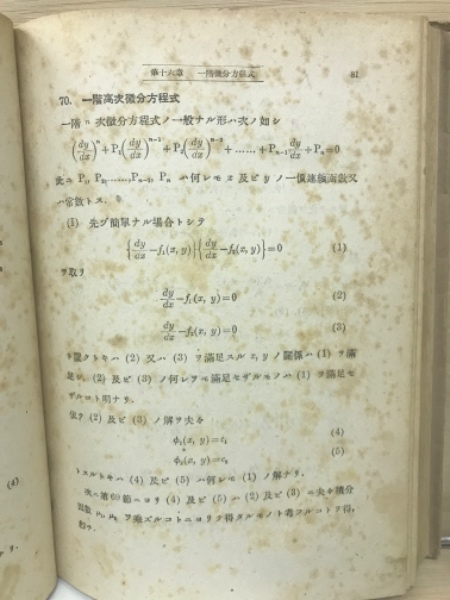 第十六章 一階微分方程式 81
70. 一階高次微分方程式
一階 n 次微分方程式ノ一般ナル形ハ次ノ如シ
(dy/dx)^n+P₁(dy/dx)^{n-1}+P₂(dy/dx)^{n-2}+……+P_{n-1}dy/dx+P_n=0
此ニ P₁, P₂,……,P_{n-1}, P_n ハ何レモ x 及ビ y ノ一價連續函數又
ハ常數トス.
(I) 先ヅ簡單ナル場合トシテ
{dy/dx−f₁(x, y)}{dy/dx−f₂(x, y)}=0 (1)
ヲ取リ
dy/dx−f₁(x, y)=0 (2)
dy/dx−f₂(x, y)=0 (3)
ト置クトキハ (2) 又ハ (3) ヲ滿足スル x, y ノ關係ハ (1) ヲ滿
足シ, (2) 及ビ (3) ノ何レヲモ滿足セザルモノハ (1) ヲ滿足セ
ザルコト明ナリ.
依テ (2) 及ビ (3) ノ解ヲ夫々
φ₁(x, y)=c₁ (4)
φ₂(x, y)=c₂ (5)
トスルトキハ (4) 及ビ (5) ハ何レモ (1) ノ解ナリ.
次ニ第60節ニヨリ (4) 及ビ (5) ハ (2) 及ビ (3) ニ夫々積分
因數 μ₁, μ₂ ヲ乘ズルコトニヨリテ得タルモノト考フルコトヲ得,
(4)
ナリ.